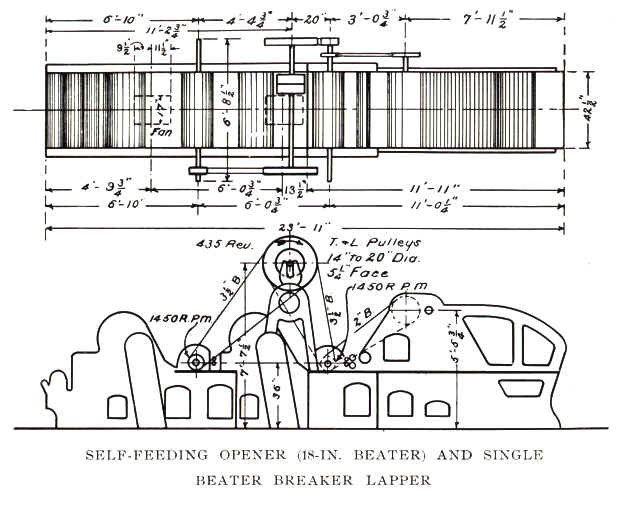 6'-10" 4'-4 3/4" 20" 3'-0 3/4" 7'-11 1/2"
11'-2 3/4"
9 1/2" 11 1/2"
17"
Fan
6'-8 1/2"
42 1/2"
4'-9 3/4" 6'-0 3/4" 13 1/2" 11'-11"
6'-10" 6'-0 3/4" 11'-0 1/4"
23'-11"
435 Rev.
T. & L Pulleys
14" To 20" Dia.
5 1/4" Face
1450 R.P.m
3 1/2" B.
3 1/2" B
2" B
1450 R.P.m
7'-7 1/2"
36"
SELF-FEEDING OPENER (18-IN. BEATER) AND SINGLE
BEATER BREAKER LAPPER